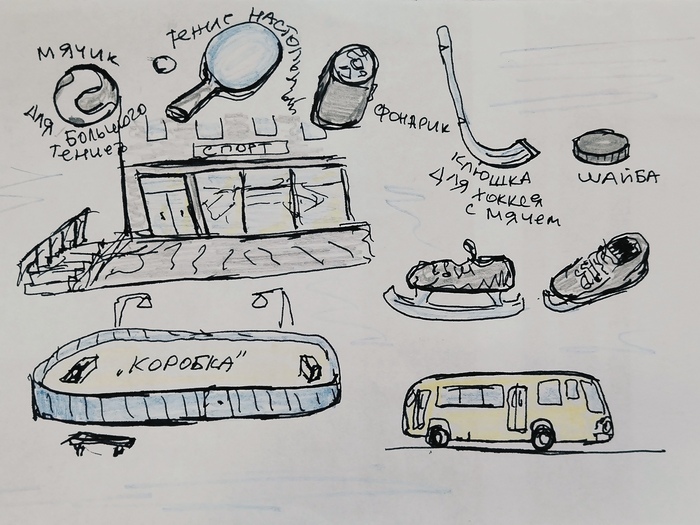 МЯЧИК
ДЛЯ БОЛЬШОГО
ТЕНИСА
ТЕНИС НАСТОЛЬНЫЙ
ФОНАРИК
КЛЮШКА
ДЛЯ ХОККЕЯ
С МЯЧЕМ
ШАЙБА
СПОРТ
„КОРОБКА"